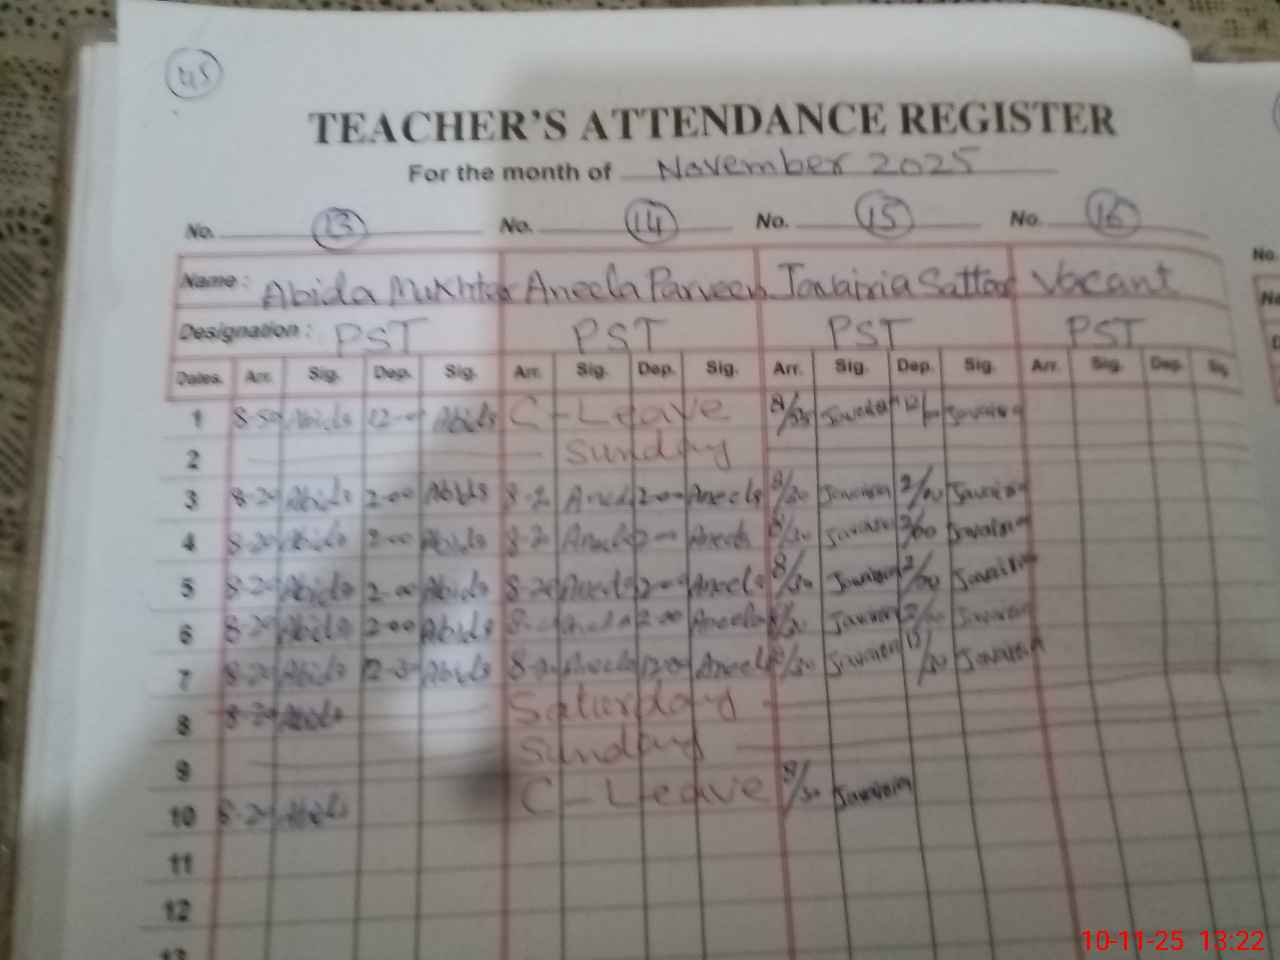 45
TEACHER'S ATTENDANCE REGISTER
For the month of November 2025
No. 13 No. 14 No. 15 No. 16
No.
Name: Abida Mukhtar Aneela Parveen Javairia Sattar Vacant
Designation: PST PST PST PST
Dates. Arr. Sig. Dep. Sig. Arr. Sig. Dep. Sig. Arr. Sig. Dep. Sig. Arr. Sig. Dep. Sig.
1 8-50 Abida 12-00 Abida C-Leave
2 Sunday
3 8-20 Abida 2-00 Abida 8-20 Aneela 2-00 Aneela 8/30 2/00
4 8-20 Abida 2-00 Abida 8-20 Aneela 2-00 Aneela 8/30 2/00
5 8-20 Abida 2-00 Abida 8-20 Aneela 2-00 Aneela 8/30 2/00
6 8-20 Abida 2-00 Abida Aneela 2-00 Aneela 8/30 2/00
7 8-20 Abida 12-30 Abida Aneela Aneela 8/30 12/30
8 8-20 Abida Saturday
9 Sunday
10 8-20 Abida C-Leave 8/30
11
12
13
10-11-25 13:22